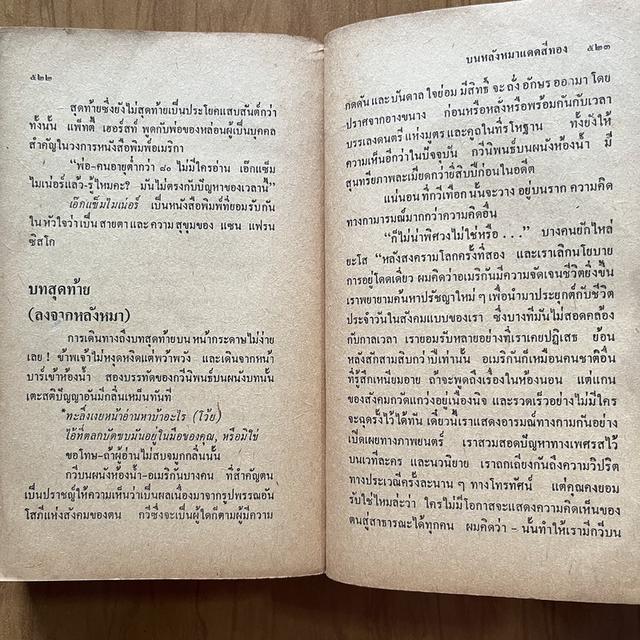 ๕๒๒
สุดท้ายซึ่งยังไม่สุดท้ายเป็นประโยคแสบสันต์กว่า
ทั้งนั้น แพ็ตตี้ เฮอร์สท์ พูดกับพ่อของหล่อนผู้เป็นบุคคล
สำคัญในวงการหนังสือพิมพ์อเมริกา
“พ่อ-คนอายุต่ำกว่า ๘๐ ไม่มีใครอ่าน เอ๊กแซ็ม
ไมเน่อร์แล้ว-รู้ไหมคะ? มันไม่ตรงกับปัญหาของเวลานี้”
เอ๊กแซ็มไมเน่อร์ เป็นหนังสือพิมพ์ที่ยอมรับกัน
ในหัวใจว่าเป็น สายตา และ ความสุขุมของ แซน แฟรน
ซิสโก
บทสุดท้าย
(ลงจากหลังหมา)
การเดินทางถึงบทสุดท้ายบน หน้ากระดาษไม่ง่าย
เลย! ข้าพเจ้าไม่หงุดหงิดแต่พร้าพวัง และเดินจากหน้า
บาร์เข้าห้องน้ำ สองบรรทัดของกวีนิพนธ์บนผนังบทนั้น
เตะสติปัญญาอันมีกลิ่นเหม็นทันที
“ทะลึ่งเงยหน้าอ่านหาบ้าอะไร (โว้ย)
ไอ้ที่ตลกบัดซบมันอยู่ในมือของคุณ, หรือมิใช่
ขอโทษ-ถ้าผู้อ่านไม่สบจมูกกลิ่นนั้น
กวีบนผนังห้องน้ำ-อเมริกันบางคน ที่สำคัญตน
เป็นปราชญ์ให้ความเห็นว่าเป็นผลเนื่องมาจากรูปพรรณอัน
โสภีแห่งสังคมของตน กวีซึ่งจะเป็นผู้ใดก็ตามผู้มีความ
บนหลังหมาแดดสีทอง ๕๒๓
กดดัน และ บันดาล ใจย่อม มีสิทธิ์ จะ ถั่ง อักษร ออกมา โดย
ปราศจากอางขนาง ก่อนหรือหลังหรือพร้อมกันกับเวลา
บรรเลงดนตรี แห่งมูตร และ คูถในที่รโหฐาน ทั้งยังให้
ความเห็นอีกว่าในปัจจุบัน กวีนิพนธ์บนผนังห้องน้ำ มี
สุนทรียภาพละเมียดกว่ายี่สิบปีก่อนในอดีต
แน่นอน ที่กวีเทือก นั้นจะวาง อยู่บนราก ความคิด
ทางกามารมณ์มากกว่าความคิดอื่น
“ก็ไม่น่าพิศวงไม่ใช่หรือ...” บางคนยักไหล่
ยะโส “หลังสงครามโลกครั้งที่สอง และเราเลิกนโยบาย
การอยู่โดดเดี่ยว ผมคิดว่าอเมริกันมีความจัดเจนชีวิตยิ่งขึ้น
เราพยายามค้นหาปรัชญาใหม่ ๆ เพื่อนำมาประยุกต์กับชีวิต
ประจำวันในสังคมแบบของเรา ซึ่งบางทีมันไม่สอดคล้อง
กับกาลเวลา เรายอมรับหลายอย่างที่เราเคยปฏิเสธ ย้อน
หลังสักสามสิบกว่าปีเท่านั้น อเมริกันก็เหมือนคนชาติอื่น
ที่รู้สึกเหนียมอาย ถ้าจะพูดถึงเรื่องในห้องนอน แต่แกน
ของสังคมกวัดแกว่งอยู่เนื่องนิจ และรวดเร็วอย่างไม่มีใคร
จะฉุดรั้งไว้ได้ทัน เดี๋ยวนี้เราแสดงอารมณ์ทางกามกันอย่าง
เปิดเผยทางภาพยนตร์ เราสวมสอดปัญหาทางเพศรสไว้
บนเวทีละคร และนวนิยาย เราถกเถียงกันถึงความวิปริต
ทางประเวณีครั้งละนาน ๆ ทางโทรทัศน์ แต่คุณคงยอม
รับใช่ไหมล่ะว่า ใครไม่มีโอกาสจะแสดงความคิดเห็นของ
ตนสู่สาธารณะได้ทุกคน ผมคิดว่า-นั้นทำให้เรามีกวีบน